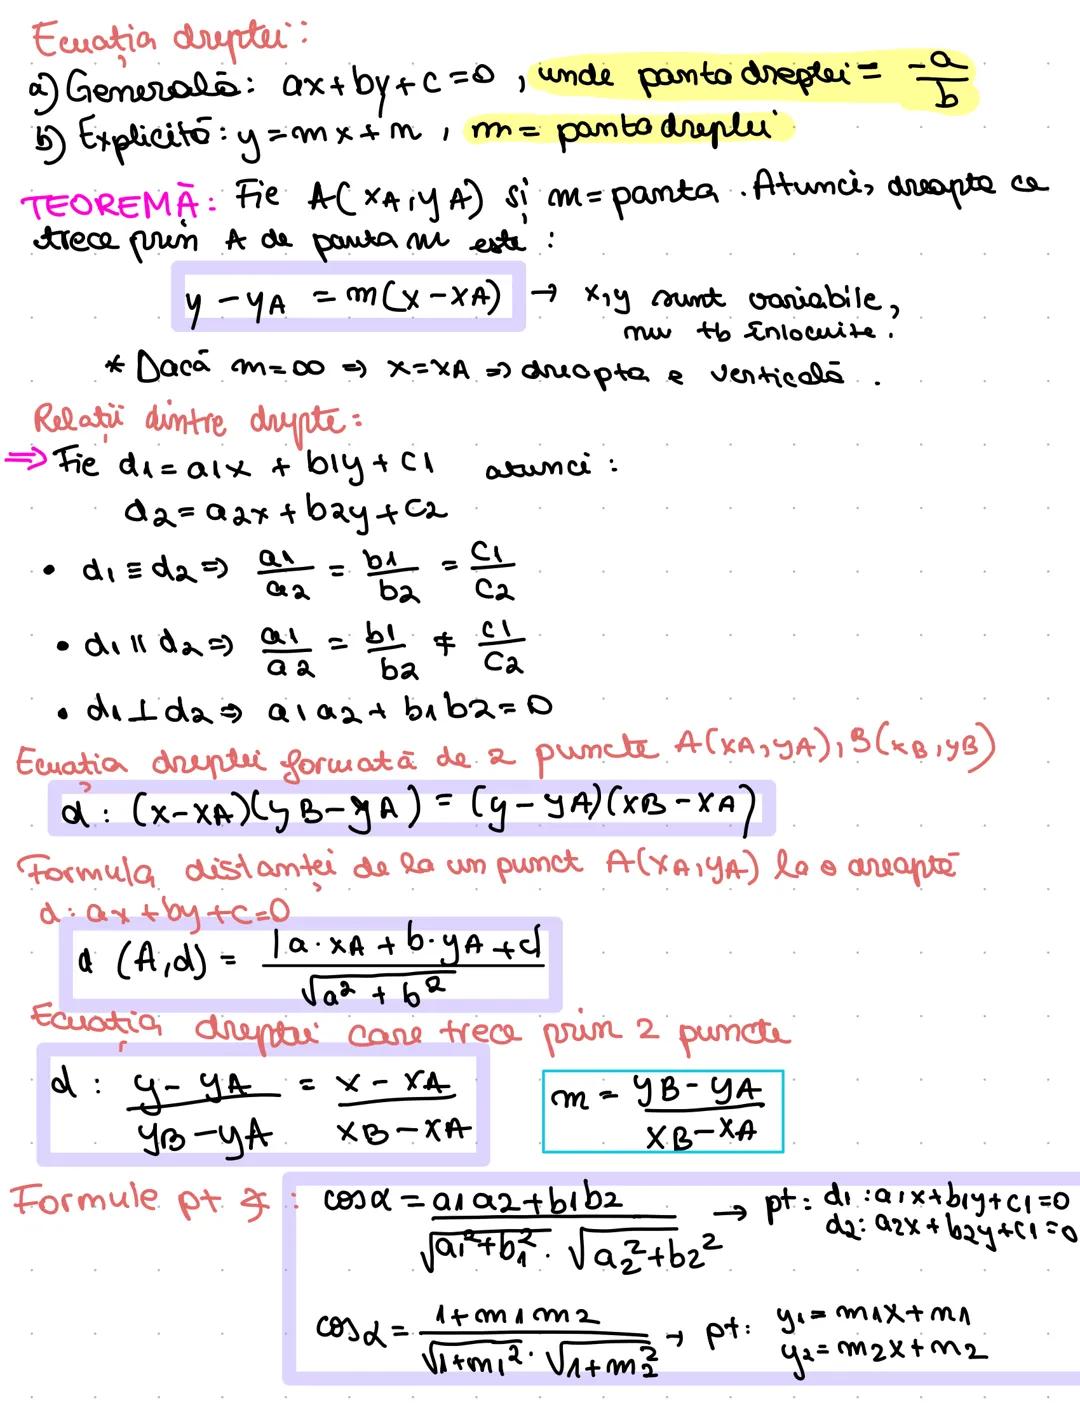 Ecuația dreptei:
a) Generală: ax+by+c=0, unde panta dreptei = -a/b
b) Explicită: y=mx+n, m= panta dreptei
TEOREMĂ: Fie A(xA,yA) și m=panta. Atunci, dreapta ce
trece prin A de panta m este:
y-yA = m(x-xA) → x,y sunt variabile,
nu tb înlocuite.
* Dacă m=∞ => x=xA => dreapta e verticală.
Relații dintre drepte:
⇒ Fie d1=a1x + b1y+c1 atunci:
d2=a2x+b2y+c2
• d1≡d2 => a1/a2 = b1/b2 = c1/c2
• d1 || d2 => a1/a2 = b1/b2 ≠ c1/c2
• d1⊥d2 => a1a2+b1b2=0
Ecuația dreptei formată de 2 puncte A(xA,yA), B(xB,yB)
d: (x-xA)(yB-yA) = (y-yA)(xB-xA)
Formula distanței de la un punct A(xA,yA) la o dreaptă
d: ax+by+c=0
d (A,d) = |a·xA+b·yA+c|/√a²+b²
Ecuația dreptei care trece prin 2 puncte
d: y-yA/yB-yA = x-xA/xB-xA m = yB-yA/xB-xA
Formule pt ∢: cosα = a1a2+b1b2/√a1²+b1² · √a2²+b2² → pt: d1:a1x+b1y+c1=0
d2: a2x+b2y+c1=0
cosα = 1+m1m2/√1+m1² · √1+m2² → pt: y1=m1x+n1
y2=m2x+n2